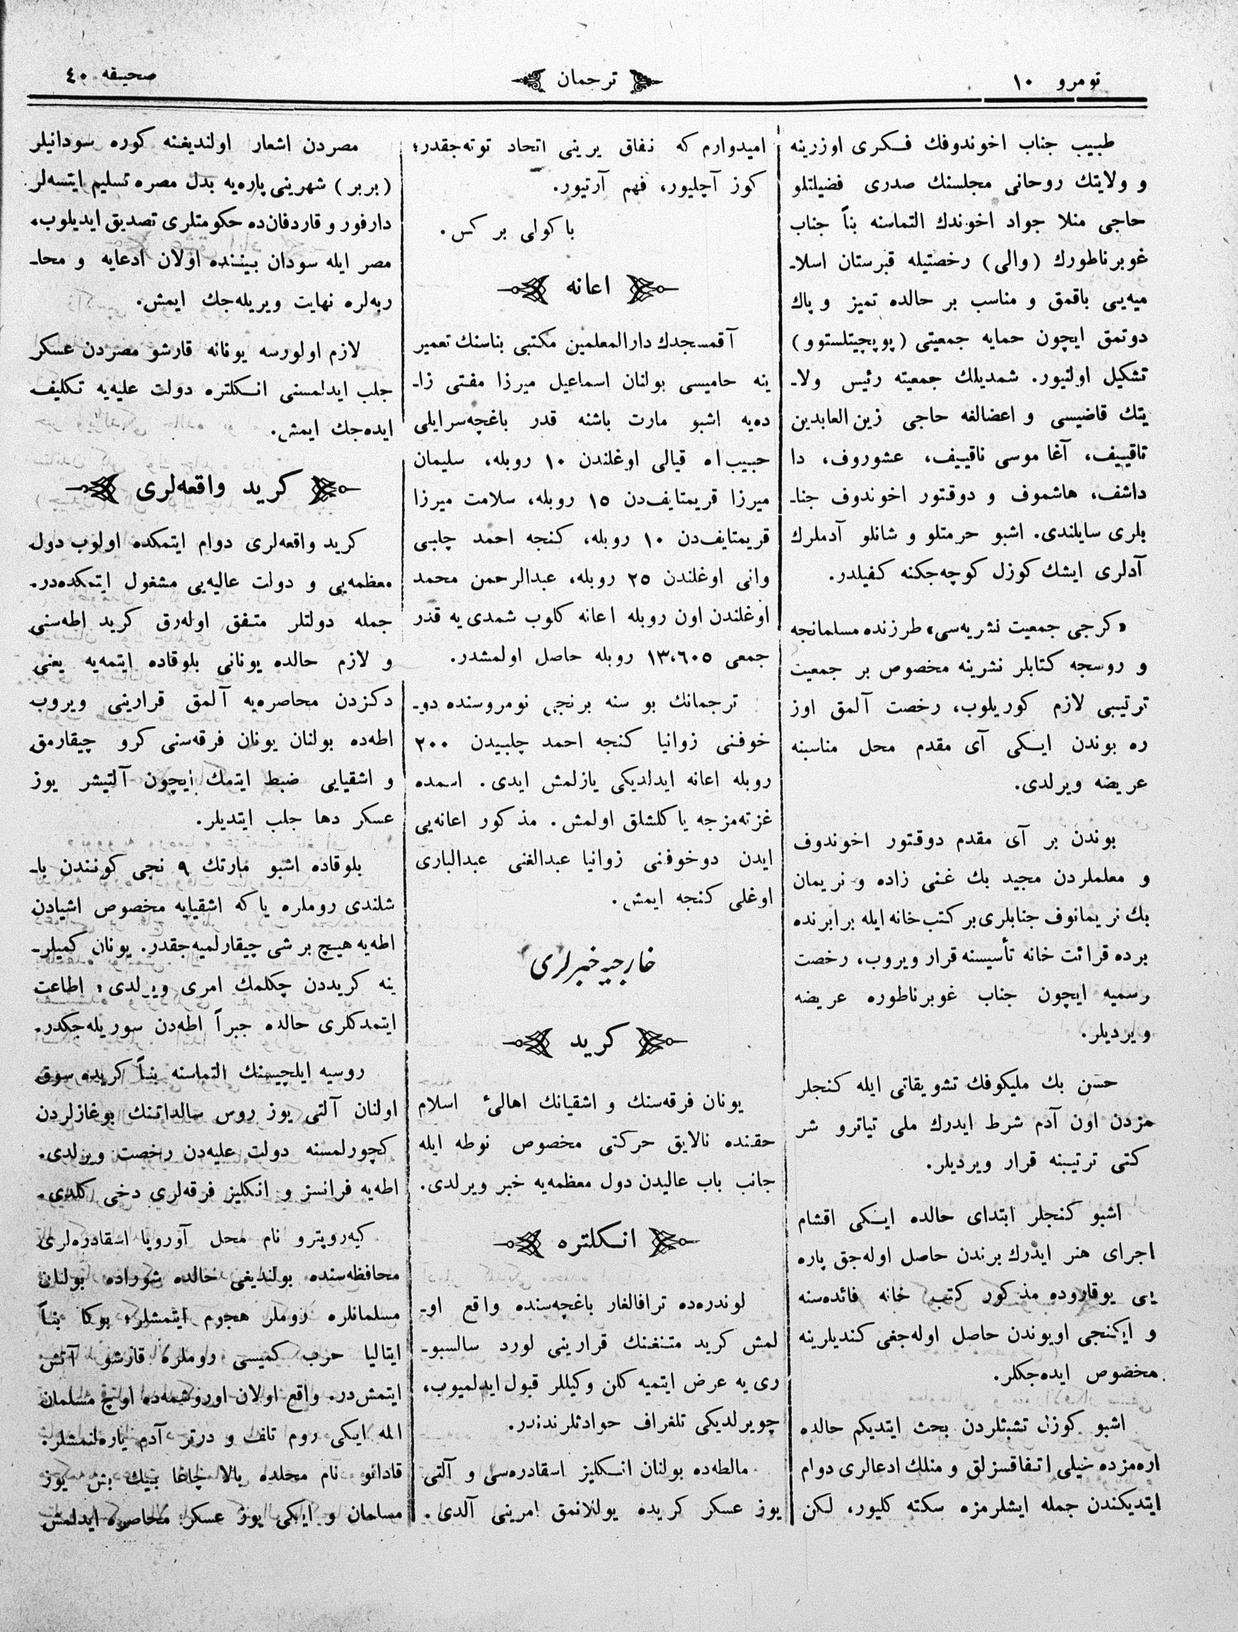 نومرو ١٠
ترجمان
صحیفه ٤٠
طبیب جناب اخوندوفك فكری اوزرینه
و ولایتك روحانی مجلسنك صدری فضیلتلو
حاجی منلا جواد اخوندك التماسنه بناً جناب
غوبرناطورك (والی) رخصتیله قبرستان اسلا-
میه‌یی باقمق و مناسب بر حالده تمیز و پاك
دوتمق ایچون حمایه جمعیتی (پوپچیتلستوو)
تشكیل اولنیور. شمدیلك جمعیته رئیس ولا-
یتك قاضیسی و اعضالغه حاجی زین العابدین
تاقییف، آغا موسی ناقییف، عشوروف، دا
داشف، هاشموف و دوقتور اخوندوف جنا-
بلری سایلندی. اشبو حرمتلو و شانلو آدملرك
آدلری ایشك كوزل كوچه‌جكنه كفیلدر.
«كرجی جمعیت نشریه‌سی» طرزنده مسلمانجه
و روسجه كتابلر نشرینه مخصوص بر جمعیت
ترتیبی لازم كوریلوب، رخصت آلمق اوز
ره بوندن ایكی آی مقدم محل مناسبنه
عریضه ویرلدی.
بوندن بر آی مقدم دوقتور اخوندوف
و معلملردن مجید بك غنی زاده و نریمان
بك نریمانوف جنابلری بر كتب‌خانه ایله برابرنده
برده قرائت خانه تأسیسنه قرار ویروب، رخصت
رسمیه ایچون جناب غوبرناطوره عریضه
ویردیلر.
حسن بك ملیكوفك تشویقاتی ایله كنجلر
مزدن اون آدم شرط ایدرك ملی تیاترو شر
كتی ترتیبنه قرار ویردیلر.
اشبو كنجلر ابتدای حالده ایكی اقشام
اجرای هنر ایدرك برندن حاصل اوله‌جق پاره
یی یوقاروده مذكور كتب خانه فائده‌سنه
و ایكنجی اویوندن حاصل اوله‌جغی كندیلرینه
مخصوص ایده‌جكلر.
اشبو كوزل تشبثلردن بحث ایتدیكم حالده
اره‌مزده خیلی اتفاقسزلق و منلك ادعالری دوام
ایتدیكندن جمله ایشلرمزه سكته كلیور، لكن
امیدوارم كه نفاق یرینی اتحاد توته‌جقدر؛
كوز آچلیور، فهم آرتیور.
باكولی بر كس.
اعانه
آقمسجدك دارالمعلمین مكتبی بناسنك تعمیر
ینه حامیسی بولنان اسماعیل میرزا مفتی زا-
ده‌یه اشبو مارت باشنه قدر باغچه‌سرایلی
حبیب‌اه قیالی اوغلندن ١٠ روبله، سلیمان
میرزا قریمتایف‌دن ١٥ روبله، سلامت میرزا
قریمتایف‌دن ١٠ روبله، كنجه احمد چلبی
وانی اوغلندن ٢٥ روبله، عبدالرحمن محمد
اوغلندن اون روبله اعانه كلوب شمدی یه قدر
جمعی ١٣،٦٠٥ روبله حاصل اولمشدر.
ترجمانك بو سنه برنجی نومروسنده دو-
خوفنی زوانیا كنجه احمد چلبیدن ٢٠٠
روبله اعانه ایدلدیكی یازلمش ایدی. اسمده
غزته‌مزجه یاكلشلق اولمش. مذكور اعانه‌یی
ایدن دوخوفنی زوانیا عبدالغنی عبدالباری
اوغلی كنجه ایمش.
خارجیه خبرلری
كرید
یونان فرقه‌سنك و اشقیانك اهالئ اسلام
حقنده نالایق حركتی مخصوص نوطه ایله
جانب باب عالیدن دول معظمه‌یه خبر ویرلدی.
انكلتره
لوندره‌ده ترافالغار باغچه‌سنده واقع او-
لمش كرید متنغنك قرارینی لورد سالسبو-
ری یه عرض ایتمیه كلن وكیللر قبول ایدلمیوب،
چویرلدیكی تلغراف حوادثلرندندر.
مالطه‌ده بولنان انكلیز اسقادره‌سی و آلتی
یوز عسكر كریده یوللانمق امرینی آلدی.
مصردن اشعار اولندیغنه كوره سودانیلر
(بربر) شهرینی پاره‌یه بدل مصره تسلیم ایتسه‌لر
دارفور و قاردفان‌ده حكومتلری تصدیق ایدیلوب،
مصر ایله سودان بیننده اولان ادعایه و محا-
ربه‌لره نهایت ویریله‌جك ایمش.
لازم اولورسه یونانه قارشو مصردن عسكر
جلب ایدلمسنی انكلتره دولت علیه‌یه تكلیف
ایده‌جك ایمش.
كرید واقعه‌لری
كرید واقعه‌لری دوام ایتمكده اولوب دول
معظمه‌یی و دولت عالیه‌یی مشغول ایتمكده‌در.
جمله دولتلر متفق اوله‌رق كرید اطه‌سنی
و لازم حالده یونانی بلوقاده ایتمه‌یه یعنی
دكزدن محاصره‌یه آلمق قرارینی ویروب
اطه‌ده بولنان یونان فرقه‌سنی كرو چیقارمق
و اشقیایی ضبط ایتمك ایچون آلتیشر یوز
عسكر دها جلب ایتدیلر.
بلوقاده اشبو مارتك ٩ نجی كونندن با-
شلندی روملره یاكه اشقیایه مخصوص اشیادن
اطه‌یه هیچ بر شی چیقارلمیه‌جقدر. یونان كمیلر-
ینه كریددن چكلمك امری ویرلدی؛ اطاعت
ایتمدكلری حالده جبراً اطه‌دن سوریله‌جكدر.
روسیه ایلچیسنك التماسنه بناً كریده سوق
اولنان آلتی یوز روس سالداتنك بوغازلردن
كچورلمسنه دولت علیه‌دن رخصت ویرلدی.
اطه‌یه فرانسز و انكلیز فرقه‌لری دخی كلدی.
كیه‌روپترو نام محل آوروپا اسقادره‌لری
محافظه‌سنده بولندیغی حالده شوراده بولنان
مسلمانلره روملر هجوم ایتمشلر؛ بوكا بناً
ایتالیا حرب كمیسی روملره قارشو آتش
ایتمش‌در. واقع اولان اوروشمه‌ده اوچ مسلمان
المه ایكی روم تلف و درتر آدم یاره‌لنمشلر.
قادانو نام محلده بالا چاغا بیك بش یوز
مسلمان و ایكی یوز عسكر محاصره ایدلمش